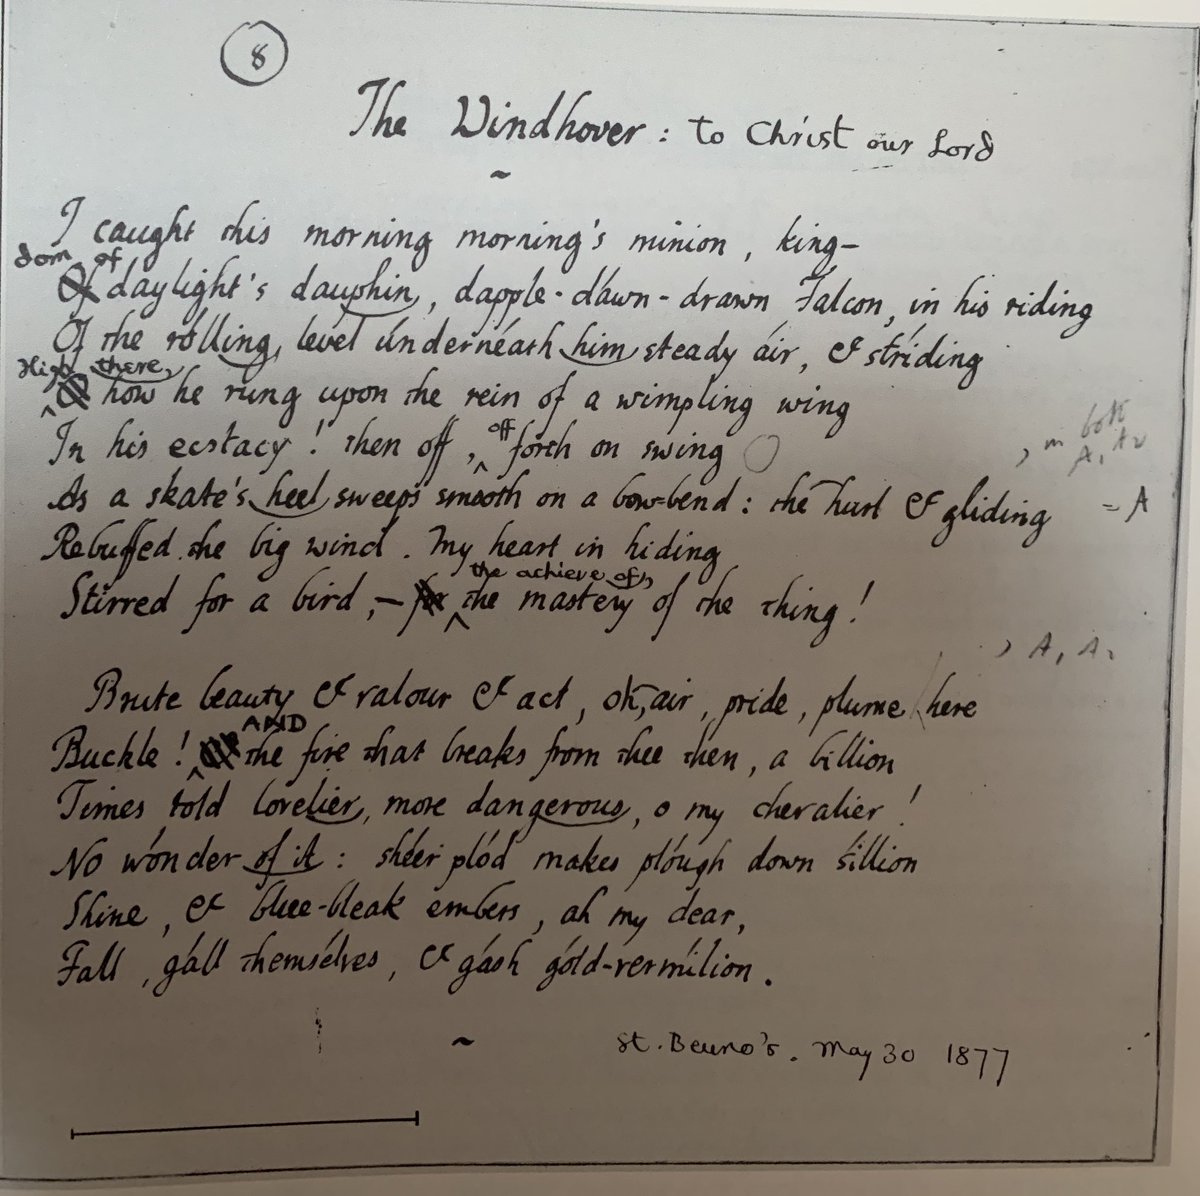 8
The Windhover : to Christ our Lord
~
I caught this morning morning's minion, king–
dom of
Of daylight's dauphin, dapple-dáwn-drawn Falcon, in his riding
Of the rólling, level únderneáth him steady áir, & stríding
High there,
how he rung upon the rein of a wimpling wing
In his ecstacy! then off, off forth on swing
As a skate's heel sweeps smooth on a bow-bend: the hurl & gliding
Rebuffed the big wind. My heart in hiding
the achieve of,
Stirred for a bird,– the mastery of the thing!
, in both
A, A2
= A
, A, A2
Brute beauty & valour & act, oh, air, pride, plume here
AND
Buckle! the fire that breaks from thee then, a billion
Times told lovelier, more dangerous, o my chevalier!
No wónder of it: shéer plód makes plóugh down síllion
Shine, & blue-bleak embers, ah my dear,
Fall, gáll themsélves, & gásh góld-vermílion.
~
St. Beuno's. May 30 1877